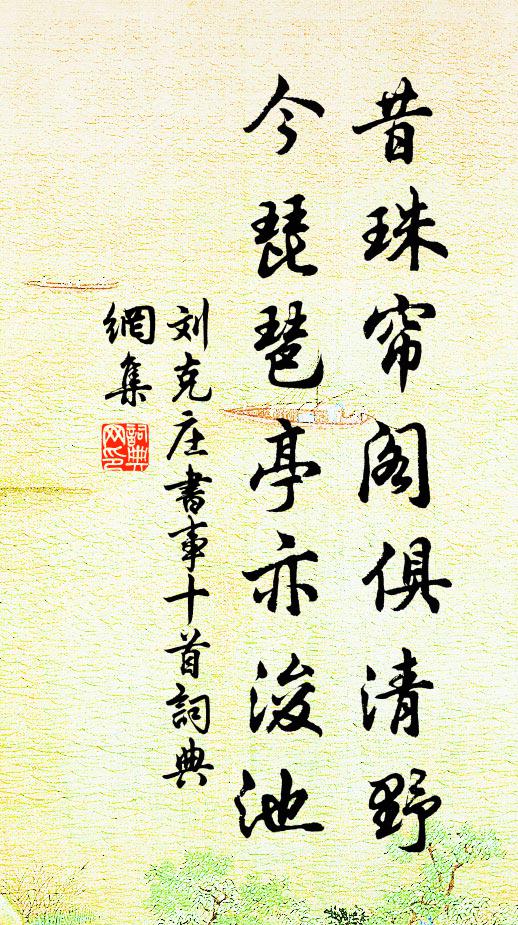 昔珠帘阁俱清野
今琵琶亭亦浚池
刘克庄书事十首词典
網集
詞典
网印